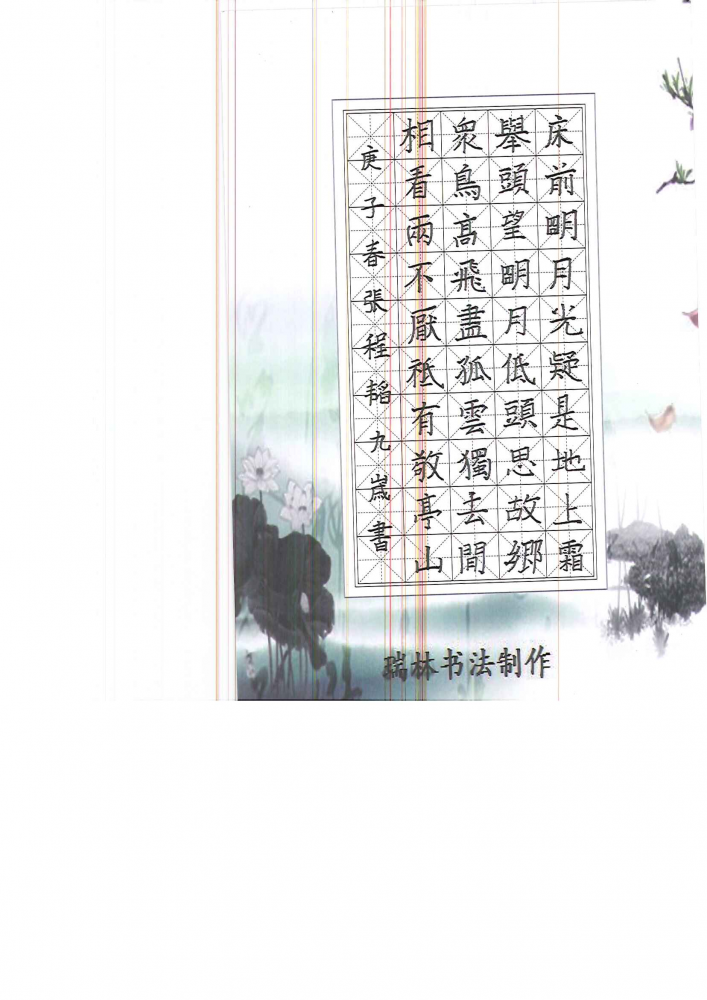 床前眀月光疑是地上霜
舉頭望眀月低頭思故鄉
衆鳥高飛盡孤雲獨去閒
相看兩不厭祗有敬亭山
庚子春張程韜九歲書
瑞林书法制作